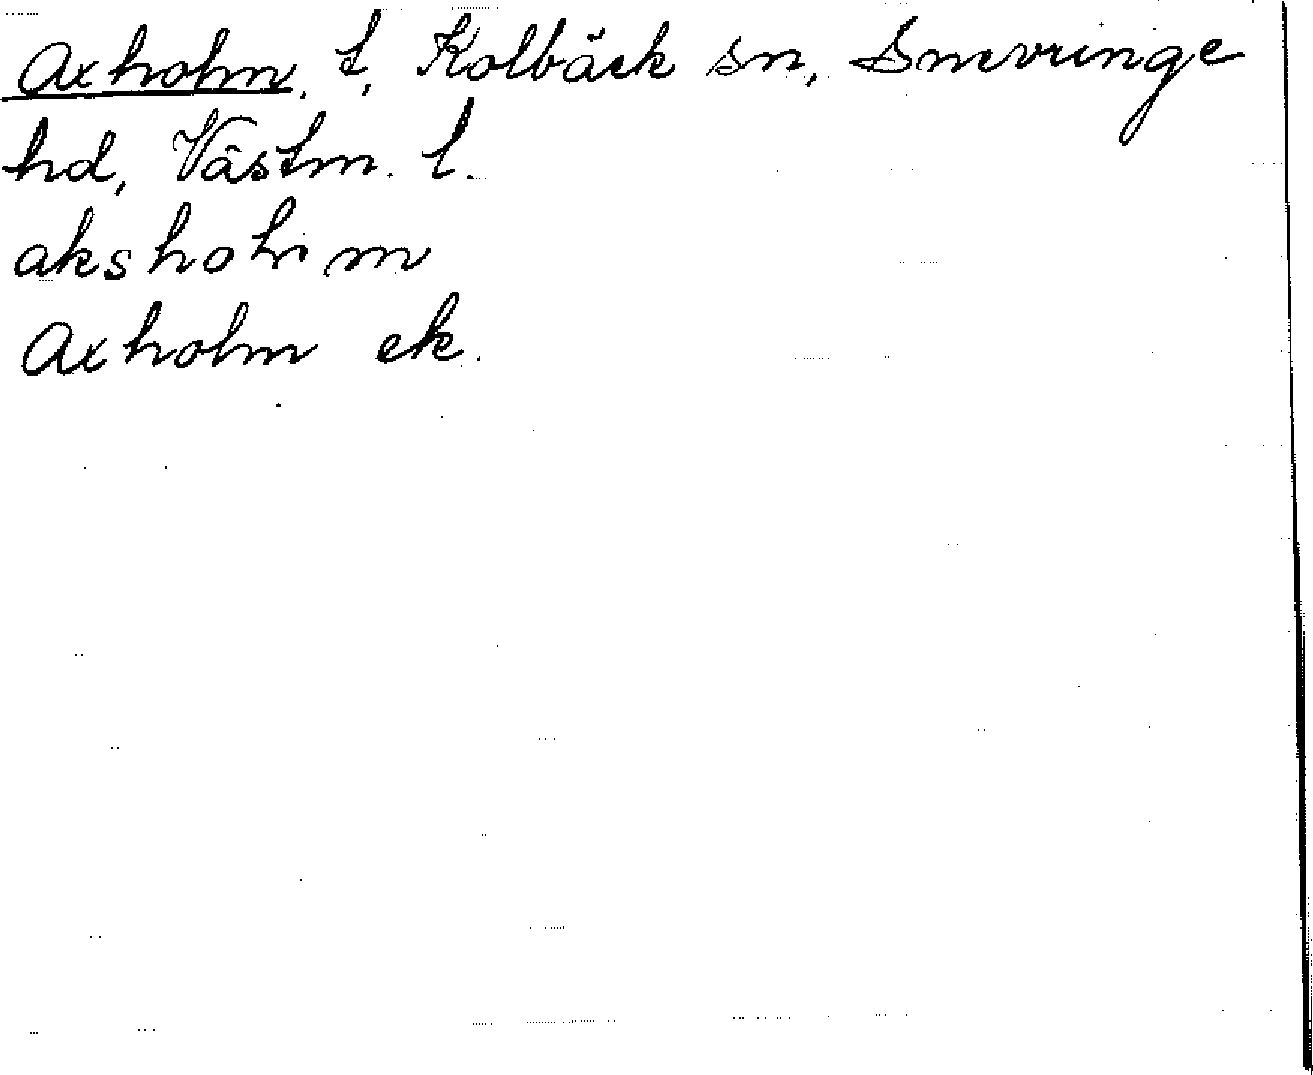 Axholm, t, Kolbäck sn, Snevringe
hd, Västm. l.
aksholm
Axholm ek.